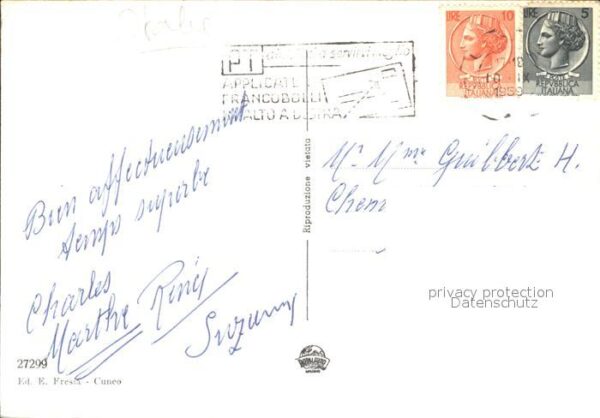 Italie
LIRE 10
LIRE 5
REPUBBLICA ITALIANA
REPUBBLICA ITALIANA
PT
APPLICATE
FRANCOBOLLI
ALTO A DESTRA
1959
Bien affectueusement
temps superbe
Charles
Marthe René
Suzanne
Riproduzione vietata
Mr Mme Guibbert H.
Chem
privacy protection
Datenschutz
27299
Ed. E. Fresia - Cuneo